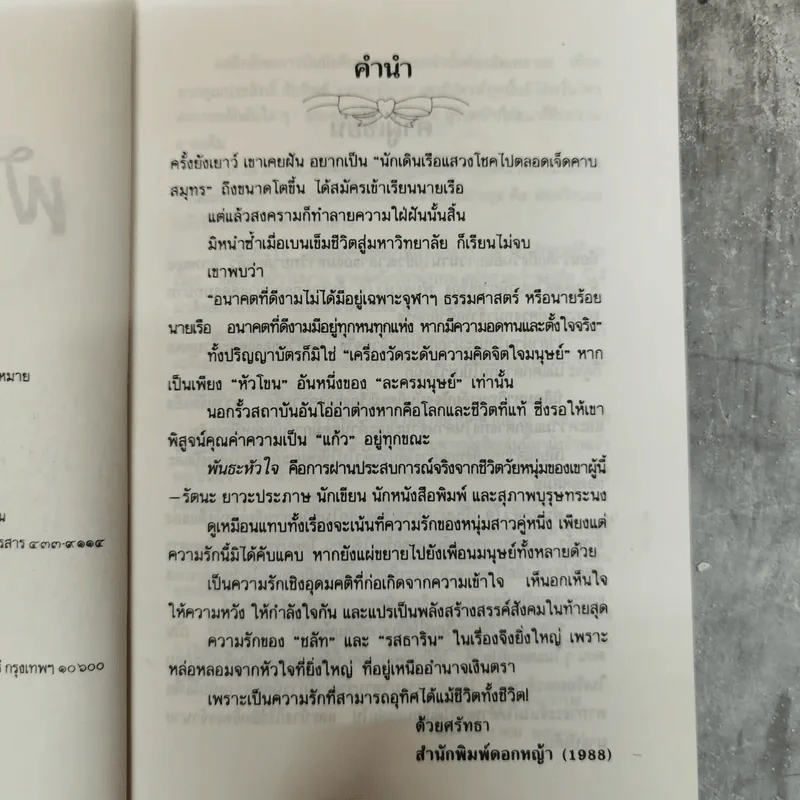 คำนำ
ครั้งยังเยาว์ เขาเคยฝัน อยากเป็น “นักเดินเรือแสวงโชคไปตลอดเจ็ดคาบ
สมุทร” ถึงขนาดโตขึ้น ได้สมัครเข้าเรียนนายเรือ
แต่แล้วสงครามก็ทำลายความใฝ่ฝันนั้นสิ้น
มิหนำซ้ำเมื่อเบนเข็มชีวิตสู่มหาวิทยาลัย ก็เรียนไม่จบ
เขาพบว่า
“อนาคตที่ดีงามไม่ได้มีอยู่เฉพาะจุฬาฯ ธรรมศาสตร์ หรือนายร้อย
นายเรือ อนาคตที่ดีงามมีอยู่ทุกหนทุกแห่ง หากมีความอดทนและตั้งใจจริง”
ทั้งปริญญาบัตรก็มิใช่ “เครื่องวัดระดับความคิดจิตใจมนุษย์” หาก
เป็นเพียง “หัวโขน” อันหนึ่งของ “ละครมนุษย์” เท่านั้น
นอกรั้วสถาบันอันโอ่อ่าต่างหากคือโลกและชีวิตที่แท้ ซึ่งรอให้เขา
พิสูจน์คุณค่าความเป็น “แก้ว” อยู่ทุกขณะ
พันธะหัวใจ คือการผ่านประสบการณ์จริงจากชีวิตวัยหนุ่มของเขาผู้นี้
–รัตนะ ยาวะประภาษ นักเขียน นักหนังสือพิมพ์ และสุภาพบุรุษทระนง
ดูเหมือนแทบทั้งเรื่องจะเน้นที่ความรักของหนุ่มสาวคู่หนึ่ง เพียงแต่
ความรักนี้มิได้คับแคบ หากยังแผ่ขยายไปยังเพื่อนมนุษย์ทั้งหลายด้วย
เป็นความรักเชิงอุดมคติที่ก่อเกิดจากความเข้าใจ เห็นอกเห็นใจ
ให้ความหวัง ให้กำลังใจกัน และแปรเป็นพลังสร้างสรรค์สังคมในท้ายสุด
ความรักของ “ชลัท” และ “รสธาริน” ในเรื่องจึงยิ่งใหญ่ เพราะ
หล่อหลอมจากหัวใจที่ยิ่งใหญ่ ที่อยู่เหนืออำนาจเงินตรา
เพราะเป็นความรักที่สามารถอุทิศได้แม้ชีวิตทั้งชีวิต!
ด้วยศรัทธา
สำนักพิมพ์ดอกหญ้า (1988)
หมาย
น
รสาร ๔๓๓-๙๑๑๔
กรุงเทพฯ ๑๐๖๐๐